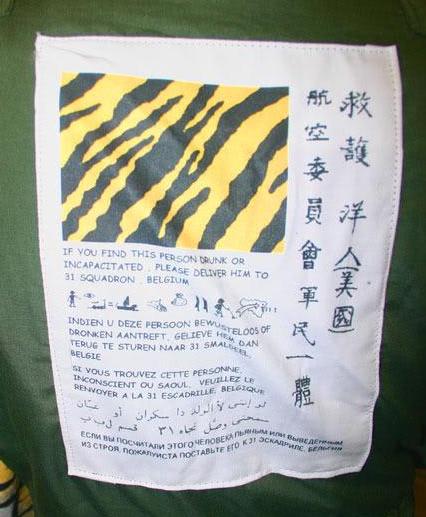 救護洋人(美國)
航空委員會軍民一體
IF YOU FIND THIS PERSON DRUNK OR
INCAPACITATED , PLEASE DELIVER HIM TO
31 SQUADRON , BELGIUM
INDIEN U DEZE PERSOON BEWUSTELOOS OF
DRONKEN AANTREFT, GELIEVE HEM DAN
TERUG TE STUREN NAAR 31 SMALDEEL,
BELGIE
SI VOUS TROUVEZ CETTE PERSONNE,
INCONSCIENT OU SAOUL, VEUILLEZ LE
RENVOYER A LA 31 ESCADRILLE, BELGIQUE
لو ألولد دا سكران أو عيان
سمحتي وصّل تجاه ٣١ قسم
ЕСЛИ ВЫ ПОСЧИТАЛИ ЭТОГО ЧЕЛОВЕКА ПЬЯНЫМ ИЛИ ВЫВЕДЕННЫМ
ИЗ СТРОЯ, ПОЖАЛУИСТА ПОСТАВЬТЕ ЕГО К 31 ЭСКАДРИЛЕ, БЕЛЬГИЯ